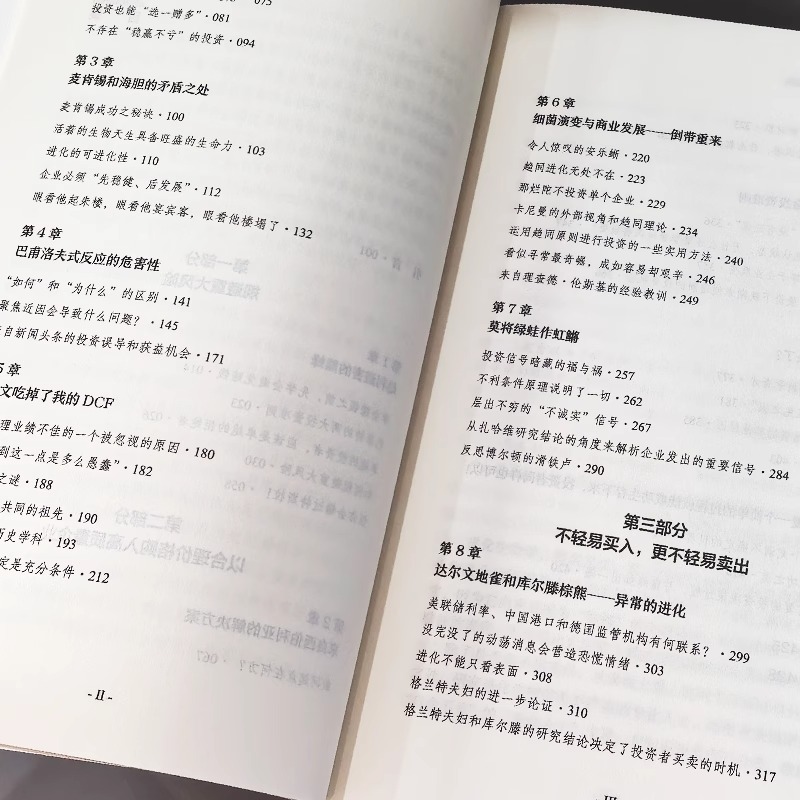 075
投资也能“选一赠多”·081
不存在“稳赢不亏”的投资·094
第3章
麦肯锡和海胆的矛盾之处
麦肯锡成功之秘诀·100
活着的生物天生具备旺盛的生命力·103
进化的可进化性·110
企业必须“先稳健、后发展”·112
眼看他起朱楼，眼看他宴宾客，眼看他楼塌了·132
第4章
巴甫洛夫式反应的危害性
“如何”和“为什么”的区别·141
聚焦近因会导致什么问题？·145
自新闻头条的投资误导和获益机会·171
章
文吃掉了我的DCF
理业绩不佳的一个被忽视的原因·180
到这一点是多么愚蠢”·182
之谜·188
共同的祖先·190
历史学科·193
定是充分条件·212
-II-
第6章
细菌演变与商业发展——倒带重来
令人惊叹的安乐蜥·220
趋同进化无处不在·223
那烂陀不投资单个企业·229
卡尼曼的外部视角和趋同理论·234
运用趋同原则进行投资的一些实用方法·240
看似寻常最奇崛，成如容易却艰辛·246
来自理查德·伦斯基的经验教训·249
第7章
莫将绿蛙作虹鳉
投资信号暗藏的福与祸·257
不利条件原理说明了一切·262
层出不穷的“不诚实”信号·267
从扎哈维研究结论的角度来解析企业发出的重要信号·284
反思博尔顿的滑铁卢·290
第三部分
不轻易买入，更不轻易卖出
第8章
达尔文地雀和库尔滕棕熊——异常的进化
美联储利率、中国港口和德国监管机构有何联系？·299
没完没了的动荡消息会营造恐慌情绪·303
进化不能只看表面·308
格兰特夫妇的进一步论证·310
格兰特夫妇和库尔滕的研究结论决定了投资者买卖的时机·317